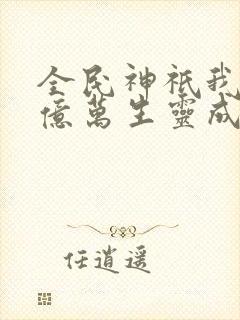 全民神祇我
億萬生靈成
任逍遥